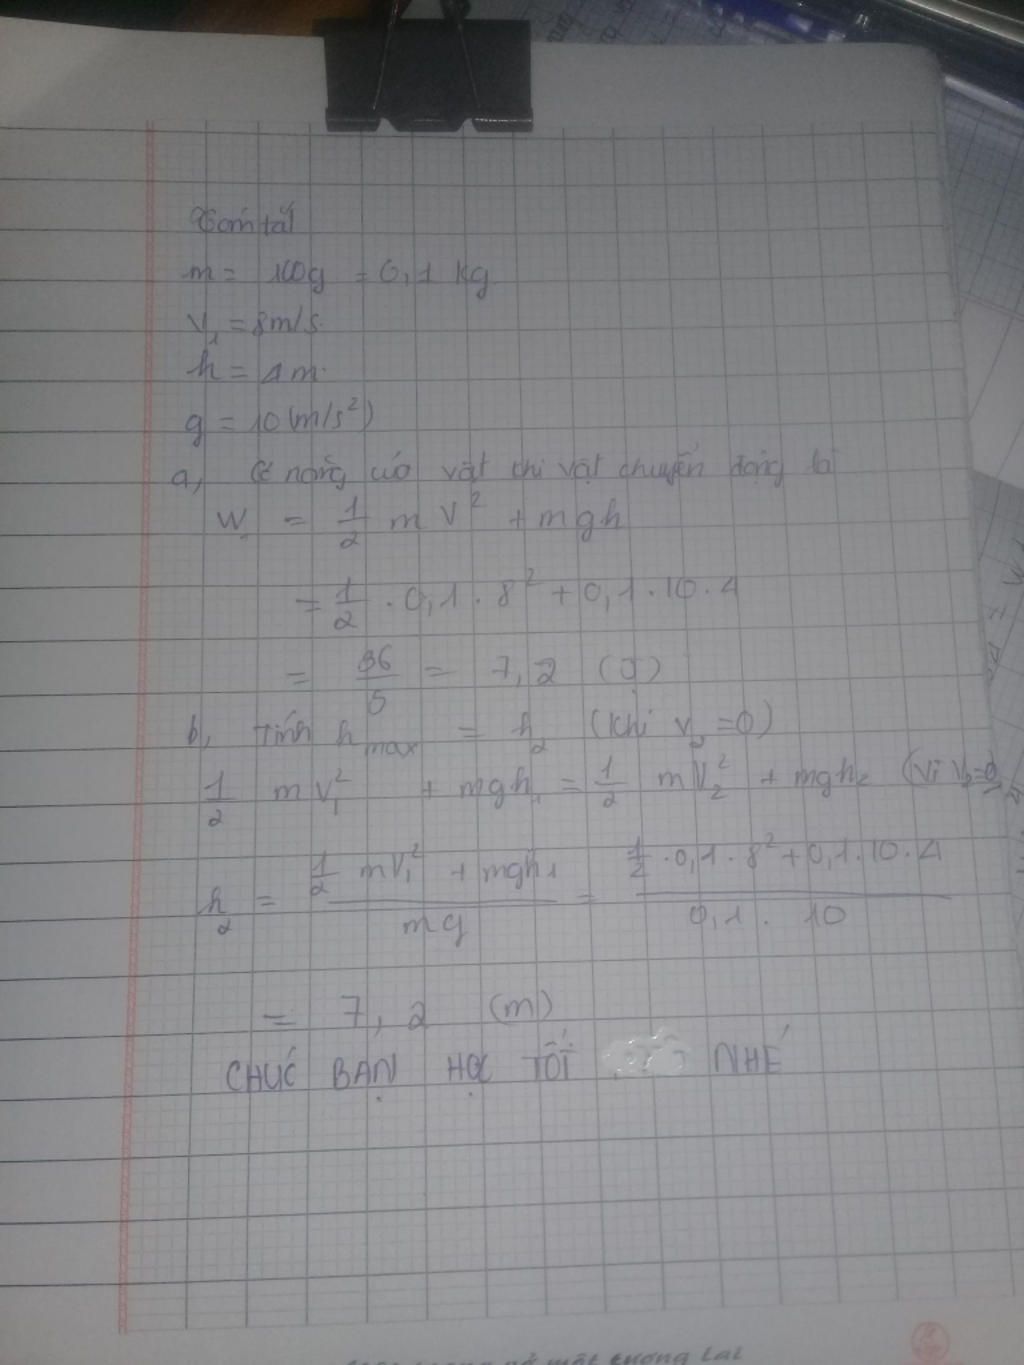 Tóm tắt
m = 100g = 0,1 kg
V₁ = 8m/s
h = 4m
g = 10(m/s²)
a, Cơ năng của vật khi vật chuyển động là
W = 1/2 m V² + mgh
= 1/2 . 0,1 . 8² + 0,1 . 10 . 4
= 36/5 = 7,2 (J)
b, Tính h max = h₂ (khi v₂ = 0)
1/2 m V₁² + mgh₁ = 1/2 m V₂² + mgh₂ (Vì V₂=0)
h₂ = (1/2 mV₁² + mgh₁)/(mg) = (1/2 . 0,1 . 8² + 0,1 . 10 . 4)/(0,1 . 10)
= 7,2 (m)
CHÚC BẠN HỌC TỐT NHÉ